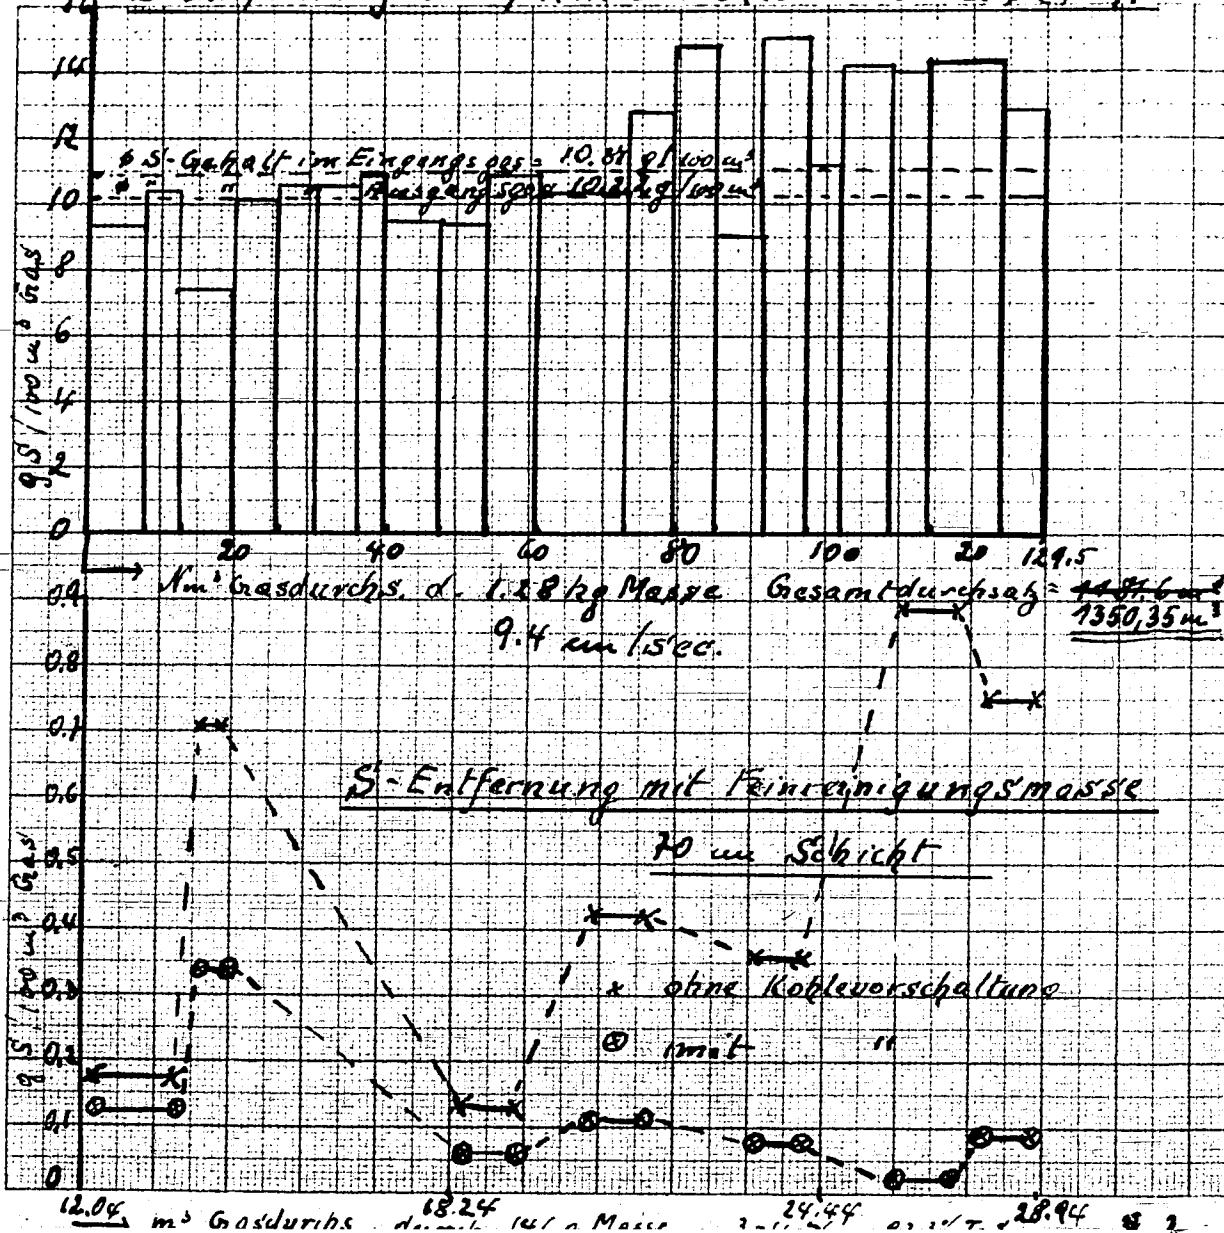 16
14
12
10
8
6
4
2
0
g S / 100 m³ Gas
ø S-Gehalt im Eingangsgas = 10.87 g/100 m³
ø " " Ausgangsgas 10.2 g/100 m³
20 40 60 80 100 20 129.5
→ Nm³ Gasdurchs. d. 1.28 kg Masse Gesamtdurchsatz =
1350,35 m³
9.4 cm/sec.
0.9
0.8
0.7
0.6
0.5
0.4
0.3
0.2
0.1
0
g S / 100 m³ Gas
S-Entfernung mit Feinreinigungsmasse
70 cm Schicht
x ohne Kohlevorschaltung
⊗ mit "
12.04 18.24 24.44 28.94
→ m³ Gasdurchs. durch Masse